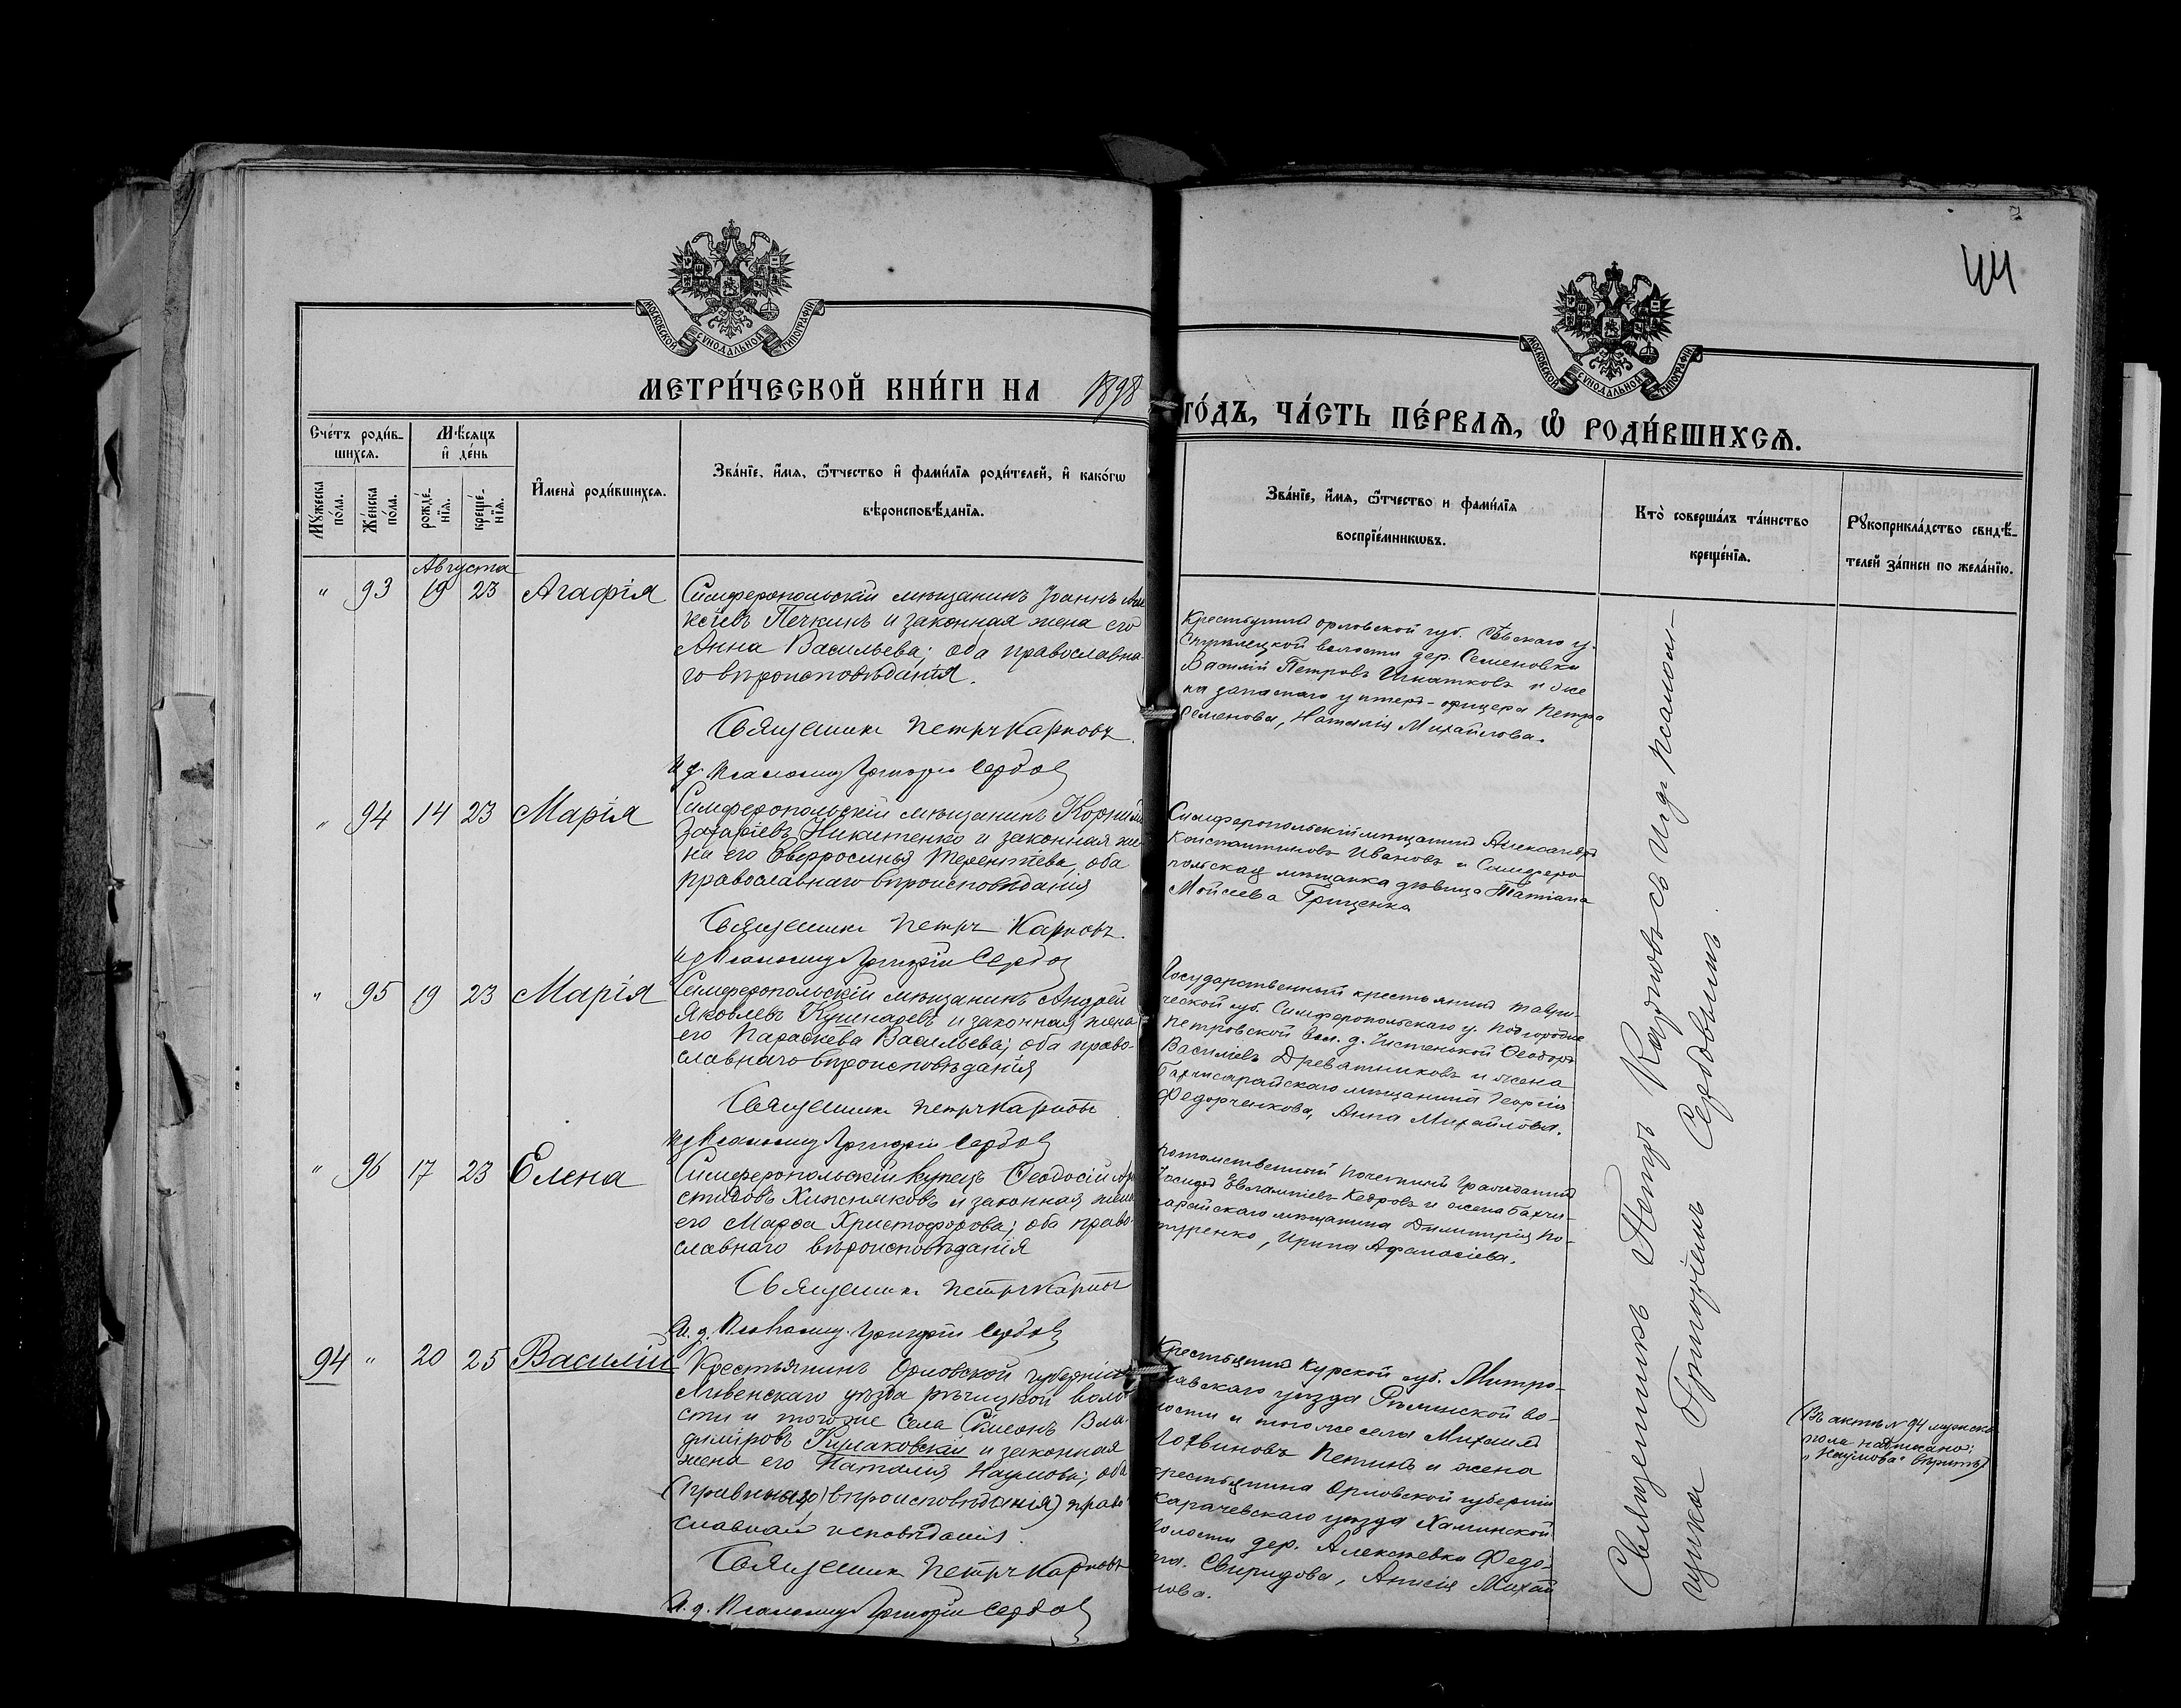 44
МОСКОВСКОЙ СѴНОДАЛЬНОЙ ТИПОГРАФІИ
МОСКОВСКОЙ СѴНОДАЛЬНОЙ ТИПОГРАФІИ
МЕТРИ́ЧЕСКОЙ КНИ́ГИ НА 1898
ГО́ДЪ, ЧА́СТЬ ПЕ́РВАѦ, Ѡ҆ РОДИ́ВШИХСѦ.
Сче́тъ роди́в-
шихсѧ.
Мѣ́сѧцъ
и҆ де́нь
Мꙋ́жеска
по́ла.
Же́нска
по́ла.
рожде́-
нїѧ.
креще́-
нїѧ.
И҆мена̀ роди́вшихсѧ.
Зва́нїе, и҆́мѧ, ѻ҆́тчество и҆ фами́лїѧ роди́телей, и҆ како́гѡ
вѣроисповѣ́данїѧ.
Зва́нїе, и҆́мѧ, ѻ҆́тчество и фами́лїѧ
воспрїе́мникѡвъ.
Кто̀ соверша́лъ та́инство
креще́нїѧ.
Рꙋкоприкла́дство свидѣ́-
телей за́писи по жела́нїю.
Августа
" 93 19 23 Агафія
Симферопольскій мѣщанинъ Іоаннъ Але
ксѣевъ Печкинъ и законная жена его
Анна Васильева; оба православна-
го вѣроисповѣданія.
Священникъ Петръ Карповъ
И. д. Псаломщ. Григорій Сербовъ
Крестьянинъ Орловской губ. Сѣвскаго у.
волости дер. Семеновки
Василій Петровъ Игнатковъ и же
на запаснаго унтеръ-офицера Петра
Семенова, Наталія Михайлова.
" 94 14 23 Марія
Симферопольскій мѣщанинъ Корнилій
Захаріевъ Никитенко и законная же
на его Евфросинья Терентіева, оба
православнаго вѣроисповѣданія
Священникъ Петръ Карповъ
И д Псаломщ Григорій Сербовъ
Симферопольскій мѣщанинъ Александръ
Константиновъ Ивановъ и Симферо
польская мѣщанка дѣвица Татіана
Мойсеева Гриценко
" 95 19 23 Марія
Симферопольскій мѣщанинъ Андрей
Яковлевъ Кушнаревъ и законная жена
его Параскева Васильева; оба право-
славнаго вѣроисповѣданія
Священникъ Петръ Карповъ
И д Псаломщ Григорій Сербовъ
Государственный крестьянинъ Таври-
ческой губ. Симферопольскаго у. Подгородне
Петровской вол. д. Чистенькой Ѳеодоръ
Василіевъ Древатниковъ и жена
Бахчисарайскаго мѣщанина Георгія
Федорченкова, Анна Михайлова.
" 96 17 23 Елена
Симферопольскій купецъ Ѳеодосій Ари
стидовъ Хижняковъ и законная жена
его Марѳа Христофорова; оба право-
славнаго вѣроисповѣданія
Священникъ Петръ Карповъ
И. д. Псаломщ. Григорій Сербовъ
Потомственный Почетный Гражданинъ
Іосифъ Евлампіевъ Кедровъ и жена Бахчи-
сарайскаго мѣщанина Димитрія По-
Ирина Афанасіева.
94 " 20 25 Василій
Крестьянинъ Орловской губерніи
Ливенскаго уѣзда Рѣчицкой воло
сти и того же села Симеонъ Вла-
диміровъ Кулаковскій и законная
жена его Наталія Наумова; оба
вѣроисповѣданія) право
славнаго исповѣданія.
Священникъ Петръ Карповъ
И. д. Псаломщ Григорій Сербовъ
Крестьянинъ Курской губ. Митро-
лавскаго уѣзда во-
лости и того же села Михаилъ
Логвиновъ Петинъ и жена
крестьянина Орловской губерніи
Карачевскаго уѣзда
волости дер. Алексѣевки Федо-
ра Свиридова, Анисія Михай
лова.
Священникъ Петръ Карповъ съ И. д. псалом-
щика Григоріемъ Сербовымъ.
(Въ актѣ N 94 мужска
пола надписано:
"Наумова" вѣрить)